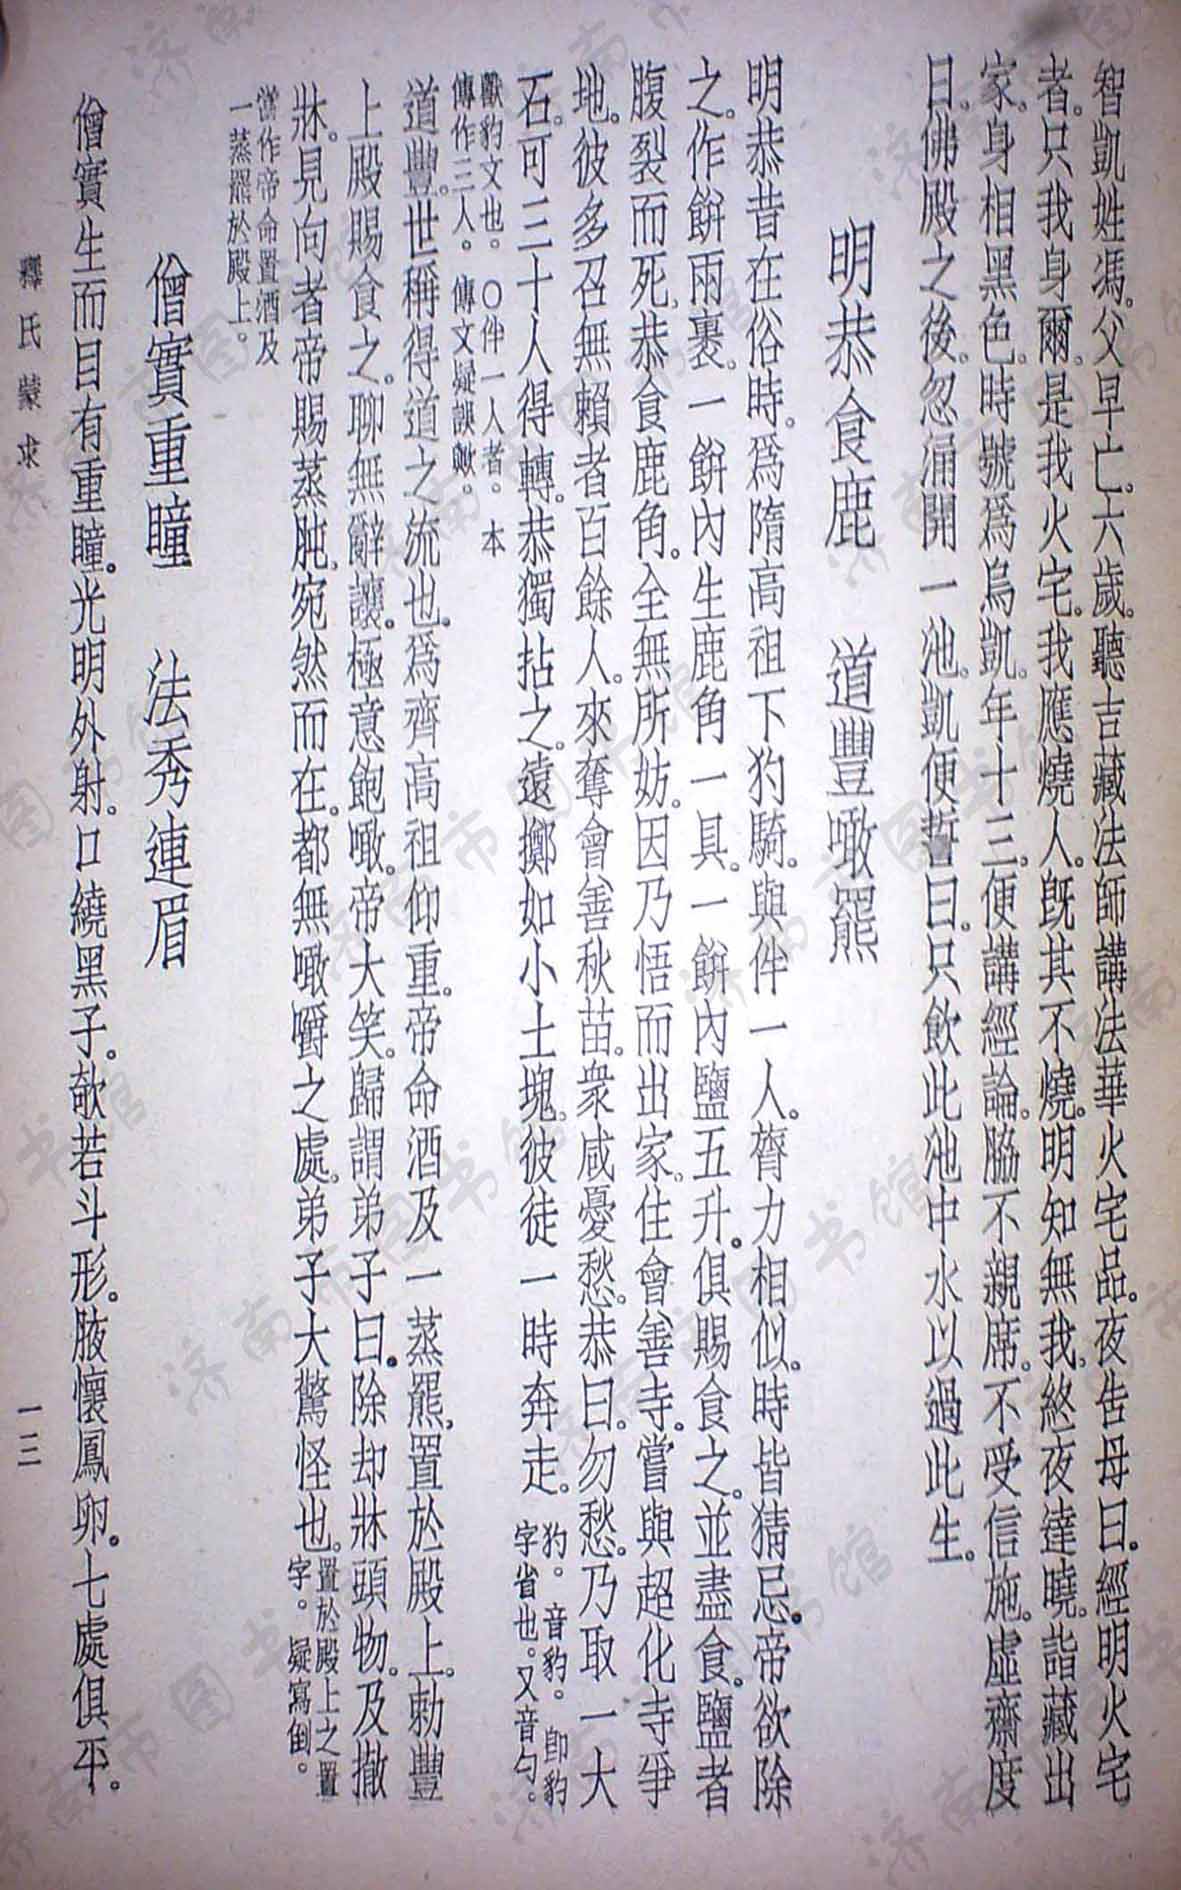 智凱姓馮。父早亡。六歲。聽吉藏法師講法華火宅品。夜告母曰。經明火宅
者。只我身爾。是我火宅。我應燒人。既其不燒。明知無我。終夜達曉。詣藏出
家。身相黑色。時號爲烏凱。年十三。便講經論。脇不親席。不受信施。虛齋度
日。佛殿之後。忽涌開一池。凱便誓曰。只飲此池中水以過此生。
明恭食鹿　道豐噉羆
明恭昔在俗時。爲隋高祖下犳騎。與伴一人。膂力相似。時皆猜忌。帝欲除
之。作餅兩裹。一餅內生鹿角一具。一餅內鹽五升。俱賜食之。並盡食。鹽者
腹裂而死。恭食鹿角。全無所妨。因乃悟而出家。住會善寺。嘗與超化寺爭
地。彼多召無賴者百餘人。來奪會善秋苗。衆咸憂愁。恭曰。勿愁。乃取一大
石。可三十人得轉。恭獨拈之。遠擲如小土塊。彼徒一時奔走。犳。音豹。卽豹
字省也。又音勺。
獸豹文也。〇伴一人者。本
傳作三人。傳文疑誤歟。
道豐。世稱得道之流也。爲齊高祖仰重。帝命酒及一蒸羆。置於殿上。勅豐
上殿賜食之。聊無辭讓。極意飽噉。帝大笑。歸謂弟子曰。除却牀頭物。及撤
牀。見向者帝賜蒸肫。宛然而在。都無噉嚼之處。弟子大驚怪也。置於殿上之置
字。疑寫倒。
當作帝命置酒及
一蒸羆於殿上。
僧實重瞳　法秀連眉
僧實生而目有重瞳。光明外射。口繞黑子。欹若斗形。腋懷鳳卵。七處俱平。
釋氏蒙求
一三